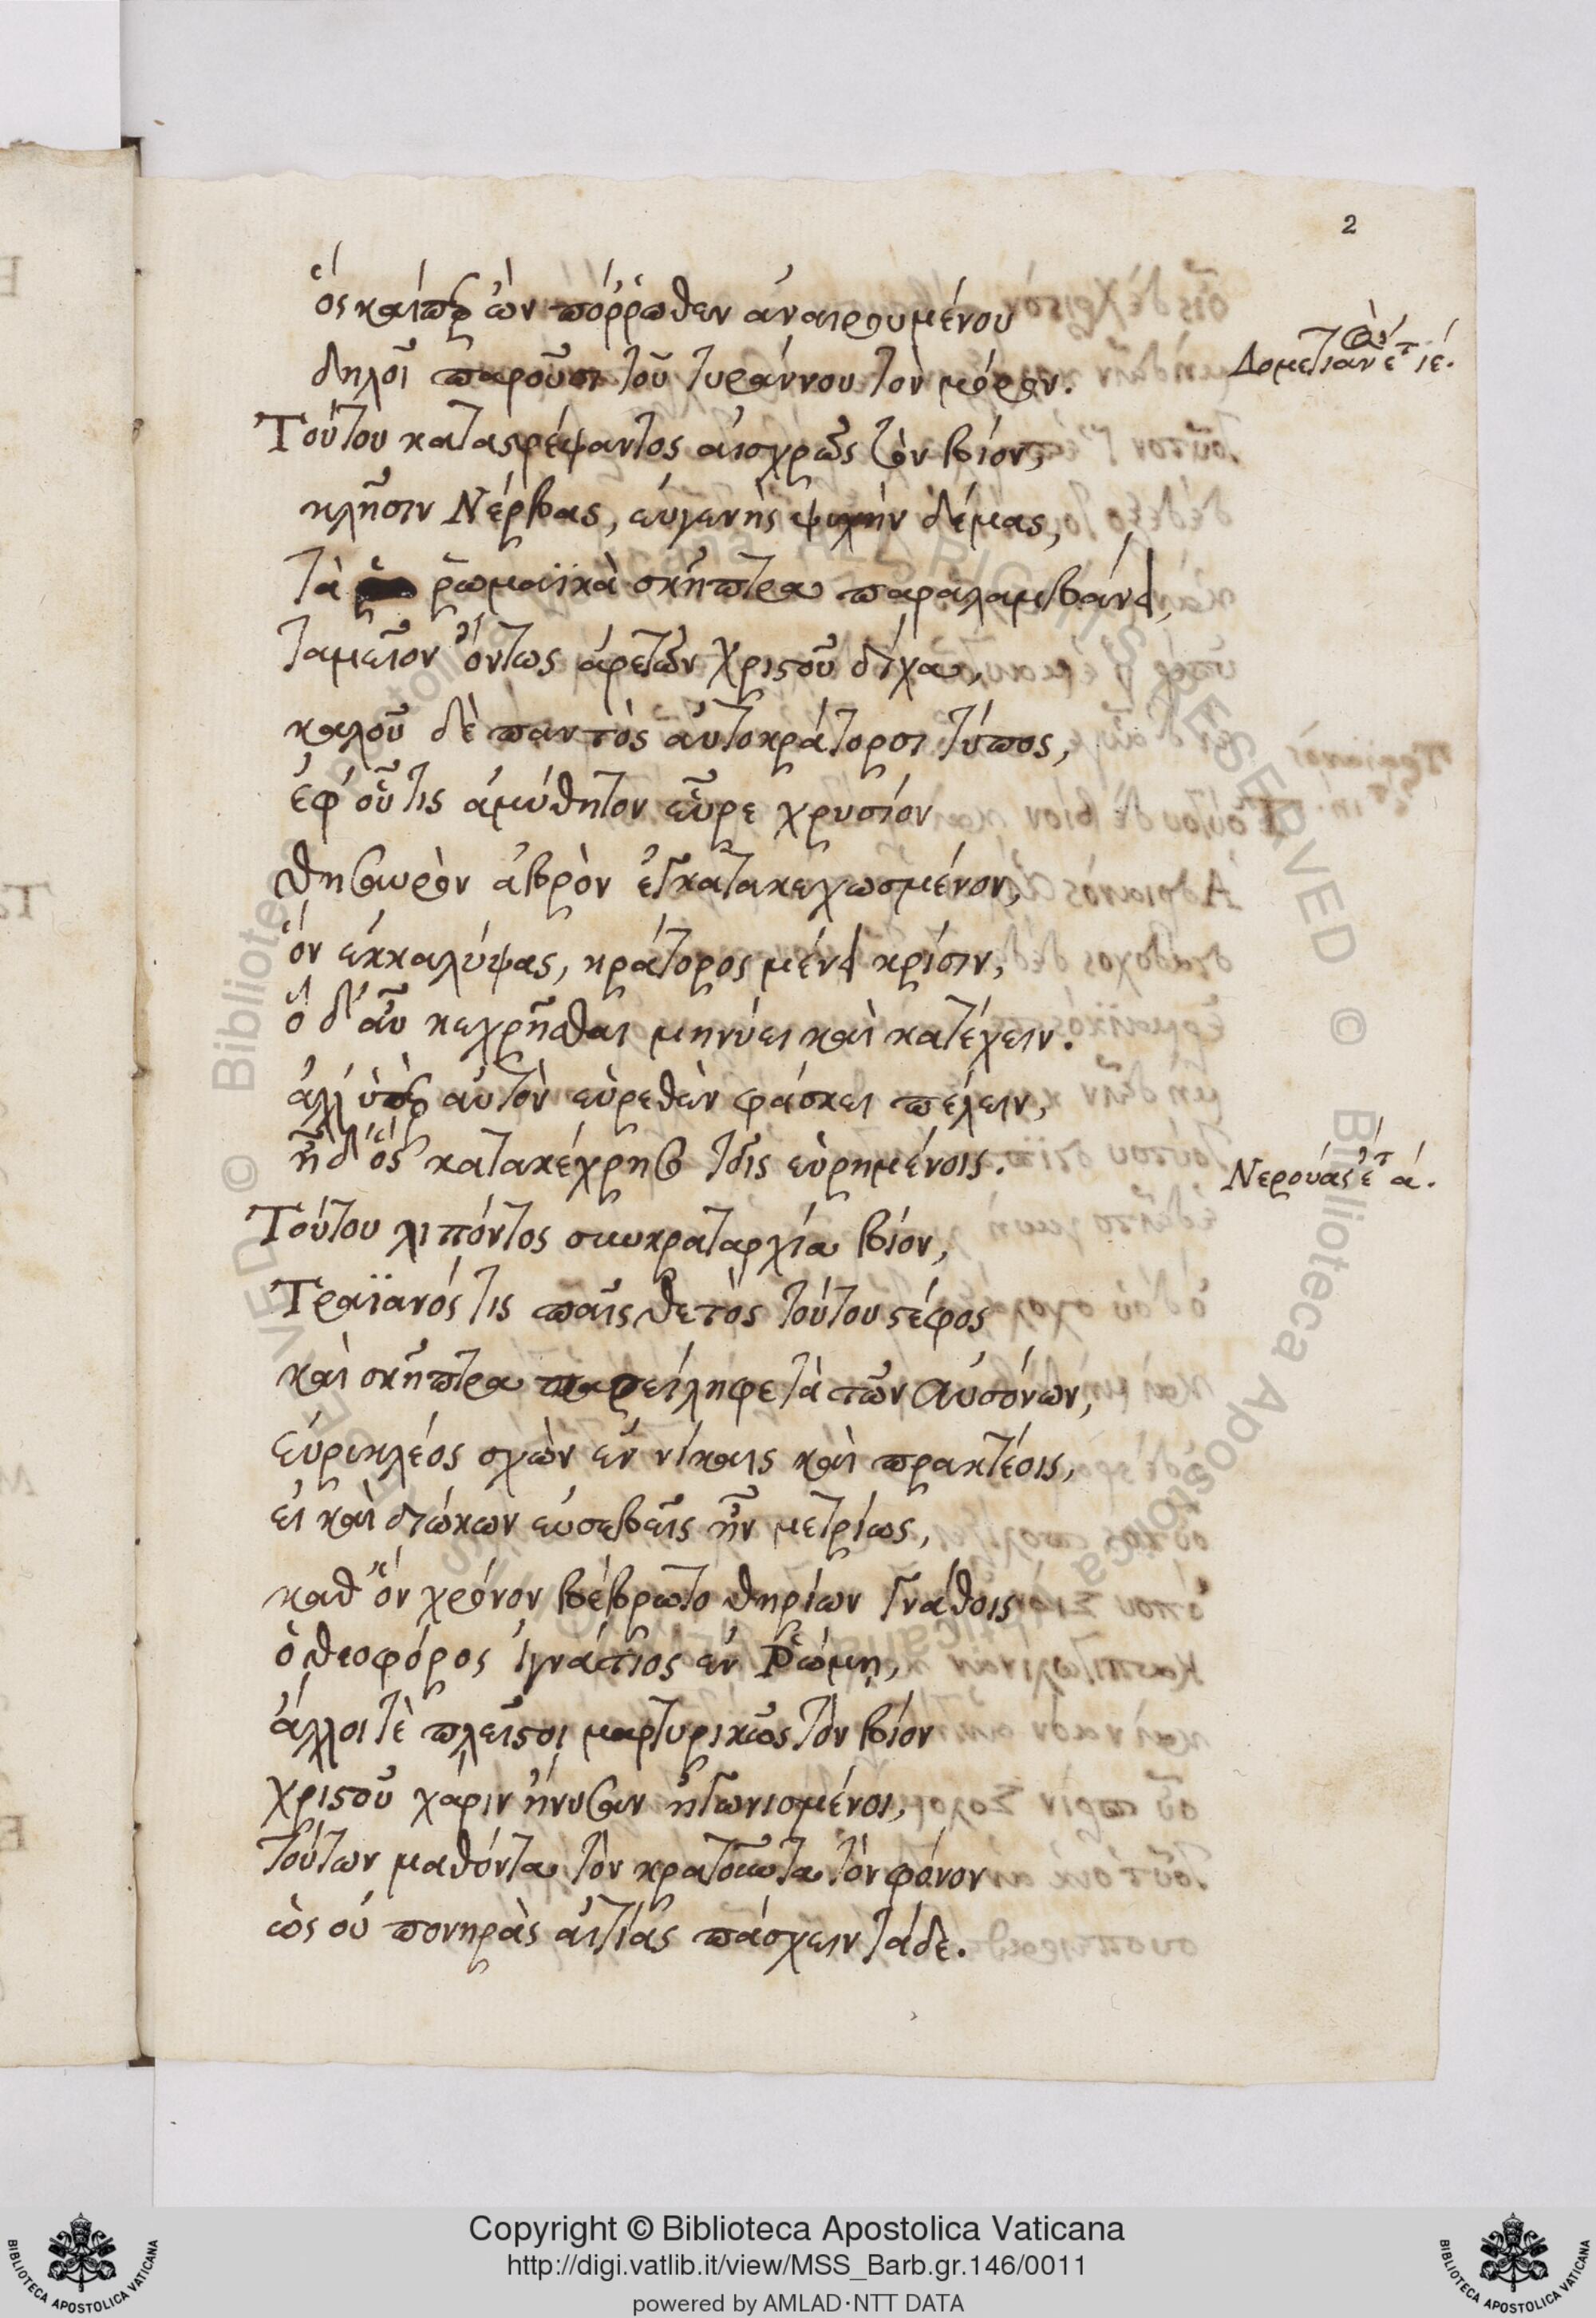 2
ὃς καίπερ ὢν πόῤῥωθεν ἀναιρουμένου
δηλοῖ παροῦσι τοῦ τυράννου τὸν μόρον.
Δομετιαν ἔτ ιε.
Τούτου καταστρέψαντος αἰσχρῶς τὸν βίον,
κλῆσιν Νέρβας, εὐγενὴς ψυχὴν δέμας,
τὰ ῥωμαϊκὰ σκῆπτρα παραλαμβάνει,
ταμεῖον ὄντως ἀρετῶν χριστοῦ δίχα,
καλοῦ δὲ παντὸς αὐτοκράτορσι τύπος,
ἐφ' οὗ τις ἀμύθητον εὗρε χρυσίον
θησαυρὸν ἁβρὸν ἐγκατακεχωσμένον,
ὃν ἐκκαλύψας, κράτορος μένει κρίσιν,
ὁ δ' αὖ κεχρῆσθαι μηνύει καὶ κατέχειν.
ἀλλ' ὑπὲρ αὐτὸν εὑρεθὲν φάσκει πέλειν,
ἦ δ' ὃς κατακέχρησο τοῖς εὑρημένοις.
Νερούας ἔτ α.
Τούτου λιπόντος σωκραταρχία βίον,
Τραϊανός τις παῖς θετὸς τούτου στέφος
καὶ σκῆπτρα παρείληφε τὰ τῶν Αὐσόνων,
εὐρυκλέος σχὼν ἐν νίκαις καὶ πρακτέοις,
εἰ καὶ διώκων εὐσεβεῖς ἦν μετρίως,
καθ' ὃν χρόνον βέβρωτο θηρίων γνάθοις
ὁ θεοφόρος ἰγνάτιος ἐν Ῥώμῃ,
ἄλλοι τὲ πλεῖστοι μαρτυρικῶς τὸν βίον
χριστοῦ χάριν ἤνυσαν ἠγωνισμένοι,
τούτων μαθόντα τὸν κρατοῦντα τὸν φόνον
ὡς οὐ πονηρὰς αἰτίας πάσχειν τάδε.
Copyright © Biblioteca Apostolica Vaticana
http://digi.vatlib.it/view/MSS_Barb.gr.146/0011
powered by AMLAD·NTT DATA